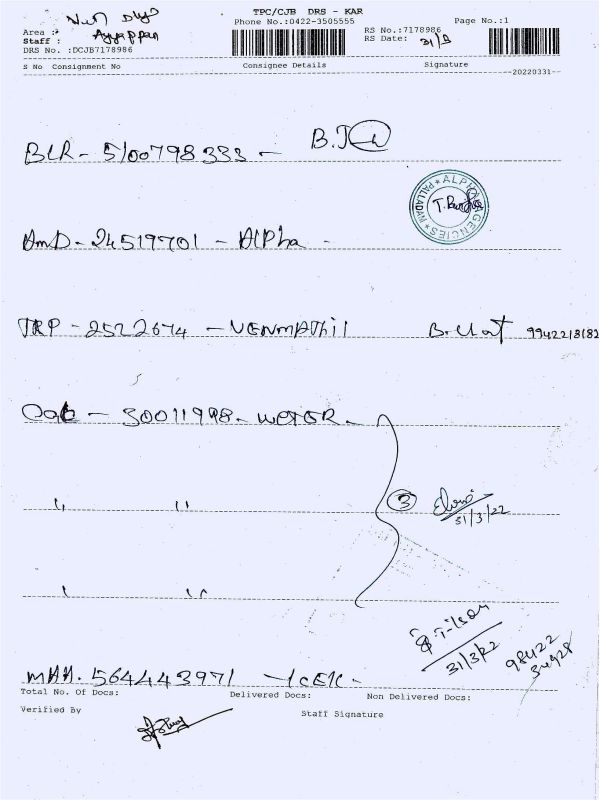 TPC/CJB DRS - KAR
Phone No.:0422-3505555 Page No.:1
Area :
Staff : Ayyappan
RS No.:7178986
RS Date: 31/3
DRS No. :DCJB7178986
S No Consignment No Consignee Details Signature
--20220331--
BLR - 5100798333 -
AMD - 24519701 - Alpha -
ALPHA AGENCIES PALLADAM
TRP - 2522674 - VENMATHil 9942218182
30011998 -
" "
3
31/3/22
" "
31/3/22
98422
34928
MAA. 564443971 - ICEIC -
Total No. Of Docs: Delivered Docs: Non Delivered Docs:
Verified By Staff Signature